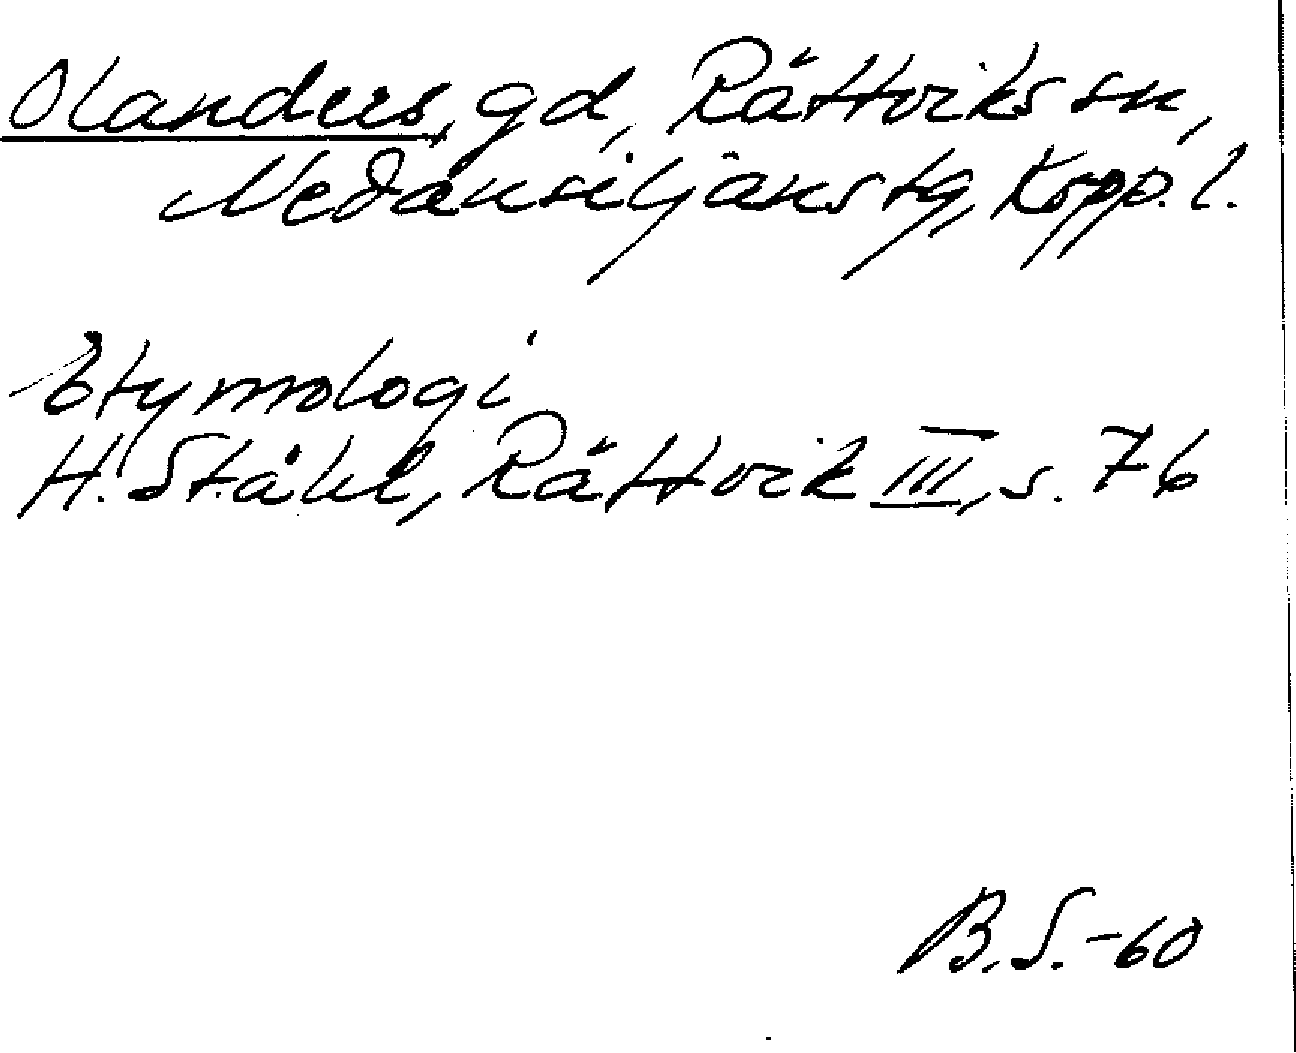 Olanders, gd, Rättviks sn,
Nedansiljans tg, Kopp. l.
Etymologi
H. Ståhl, Rättvik III, s. 76
B.S.-60